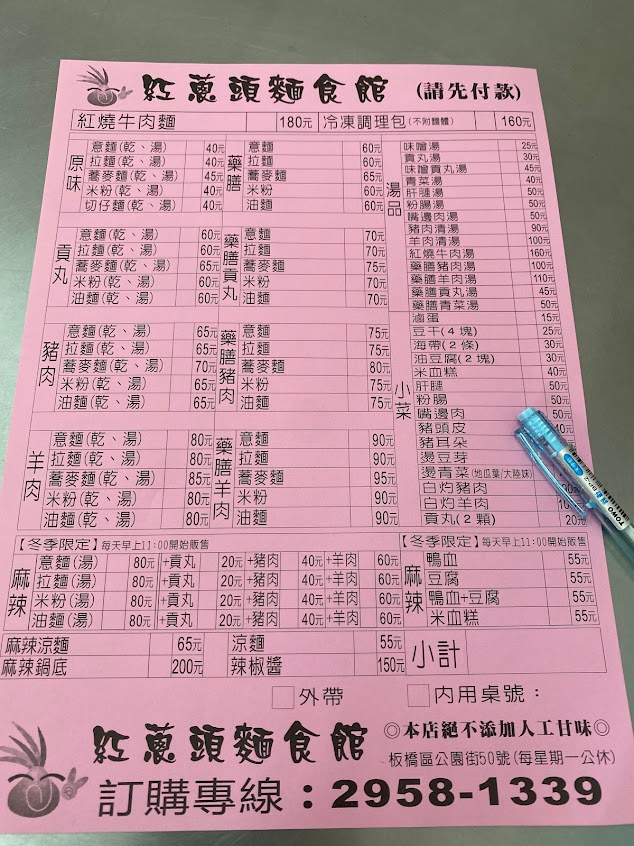 紅蔥頭麵食館 (請先付款)
紅燒牛肉麵 180元 冷凍調理包(不附麵體) 160元
原味
意麵(乾、湯) 40元
拉麵(乾、湯) 40元
蕎麥麵(乾、湯) 45元
米粉(乾、湯) 40元
切仔麵(乾、湯) 40元
藥膳
意麵 60元
拉麵 60元
蕎麥麵 65元
米粉 60元
油麵 60元
貢丸
意麵(乾、湯) 60元
拉麵(乾、湯) 60元
蕎麥麵(乾、湯) 65元
米粉(乾、湯) 60元
油麵(乾、湯) 60元
藥膳貢丸
意麵 70元
拉麵 70元
蕎麥麵 75元
米粉 70元
油麵 70元
豬肉
意麵(乾、湯) 65元
拉麵(乾、湯) 65元
蕎麥麵(乾、湯) 70元
米粉(乾、湯) 65元
油麵(乾、湯) 65元
藥膳豬肉
意麵 75元
拉麵 75元
蕎麥麵 80元
米粉 75元
油麵 75元
羊肉
意麵(乾、湯) 80元
拉麵(乾、湯) 80元
蕎麥麵(乾、湯) 85元
米粉(乾、湯) 80元
油麵(乾、湯) 80元
藥膳羊肉
意麵 90元
拉麵 90元
蕎麥麵 95元
米粉 90元
油麵 90元
湯品
味噌湯 25元
貢丸湯 30元
味噌貢丸湯 45元
青菜湯 40元
肝腱湯 50元
粉腸湯 50元
嘴邊肉湯 50元
豬肉清湯 90元
羊肉清湯 100元
紅燒牛肉湯 160元
藥膳豬肉湯 100元
藥膳羊肉湯 110元
藥膳貢丸湯 45元
藥膳青菜湯 50元
小菜
滷蛋 15元
豆干(4塊) 25元
海帶(2條) 30元
油豆腐(2塊) 30元
米血糕 40元
肝腱 50元
粉腸 50元
嘴邊肉 50元
豬頭皮
豬耳朵
燙豆芽
燙青菜(地瓜葉/大陸妹)
白灼豬肉
白灼羊肉
貢丸(2顆) 20元
【冬季限定】每天早上11:00開始販售
麻辣
意麵(湯) 80元 +貢丸 20元 +豬肉 40元 +羊肉 60元
拉麵(湯) 80元 +貢丸 20元 +豬肉 40元 +羊肉 60元
米粉(湯) 80元 +貢丸 20元 +豬肉 40元 +羊肉 60元
油麵(湯) 80元 +貢丸 20元 +豬肉 40元 +羊肉 60元
【冬季限定】每天早上11:00開始販售
麻辣
鴨血 55元
豆腐 55元
鴨血+豆腐 55元
米血糕 55元
麻辣涼麵 65元 涼麵 55元
麻辣鍋底 200元 辣椒醬 150元
小計
外帶 內用桌號：
紅蔥頭麵食館 ◎本店絕不添加人工甘味◎
板橋區公園街50號(每星期一公休)
訂購專線：2958-1339